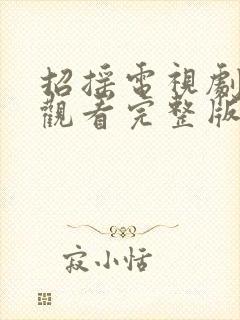 招摇電視劇
觀看完整版
寂小恬